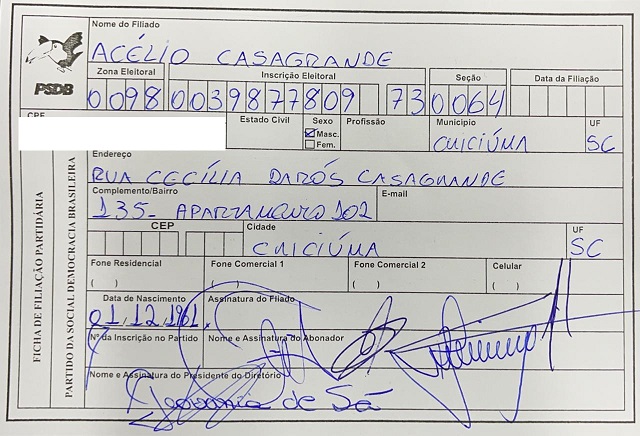 Nome do Filiado
ACÉLIO CASAGRANDE
PSDB
Zona Eleitoral Inscrição Eleitoral Seção Data da Filiação
0098 0039877809 73 0064
CPF Estado Civil Sexo Profissão Município UF
Masc. Fem.
CRICIÚMA SC
Endereço
RUA CECÍLIA DARÓS CASAGRANDE
Complemento/Bairro E-mail
135- APARTAMENTO 102
CEP Cidade UF
CRICIÚMA SC
Fone Residencial Fone Comercial 1 Fone Comercial 2 Celular
( ) ( ) ( ) ( )
Data de Nascimento Assinatura do Filiado
01.12.1961.
Nº da Inscrição no Partido Nome e Assinatura do Abonador
Nome e Assinatura do Presidente do Diretório
Geovania de Sá
FICHA DE FILIAÇÃO PARTIDÁRIA
PARTIDO DA SOCIAL DEMOCRACIA BRASILEIRA